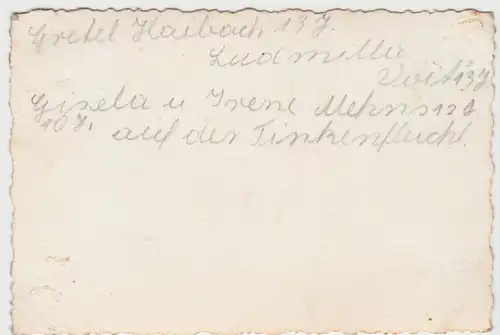 Gretel Haibach 13 J.
Ludmilla
Voit 13 J
Gisela u Irene Mehns 12 J
10 J. auf der Finkenflucht.